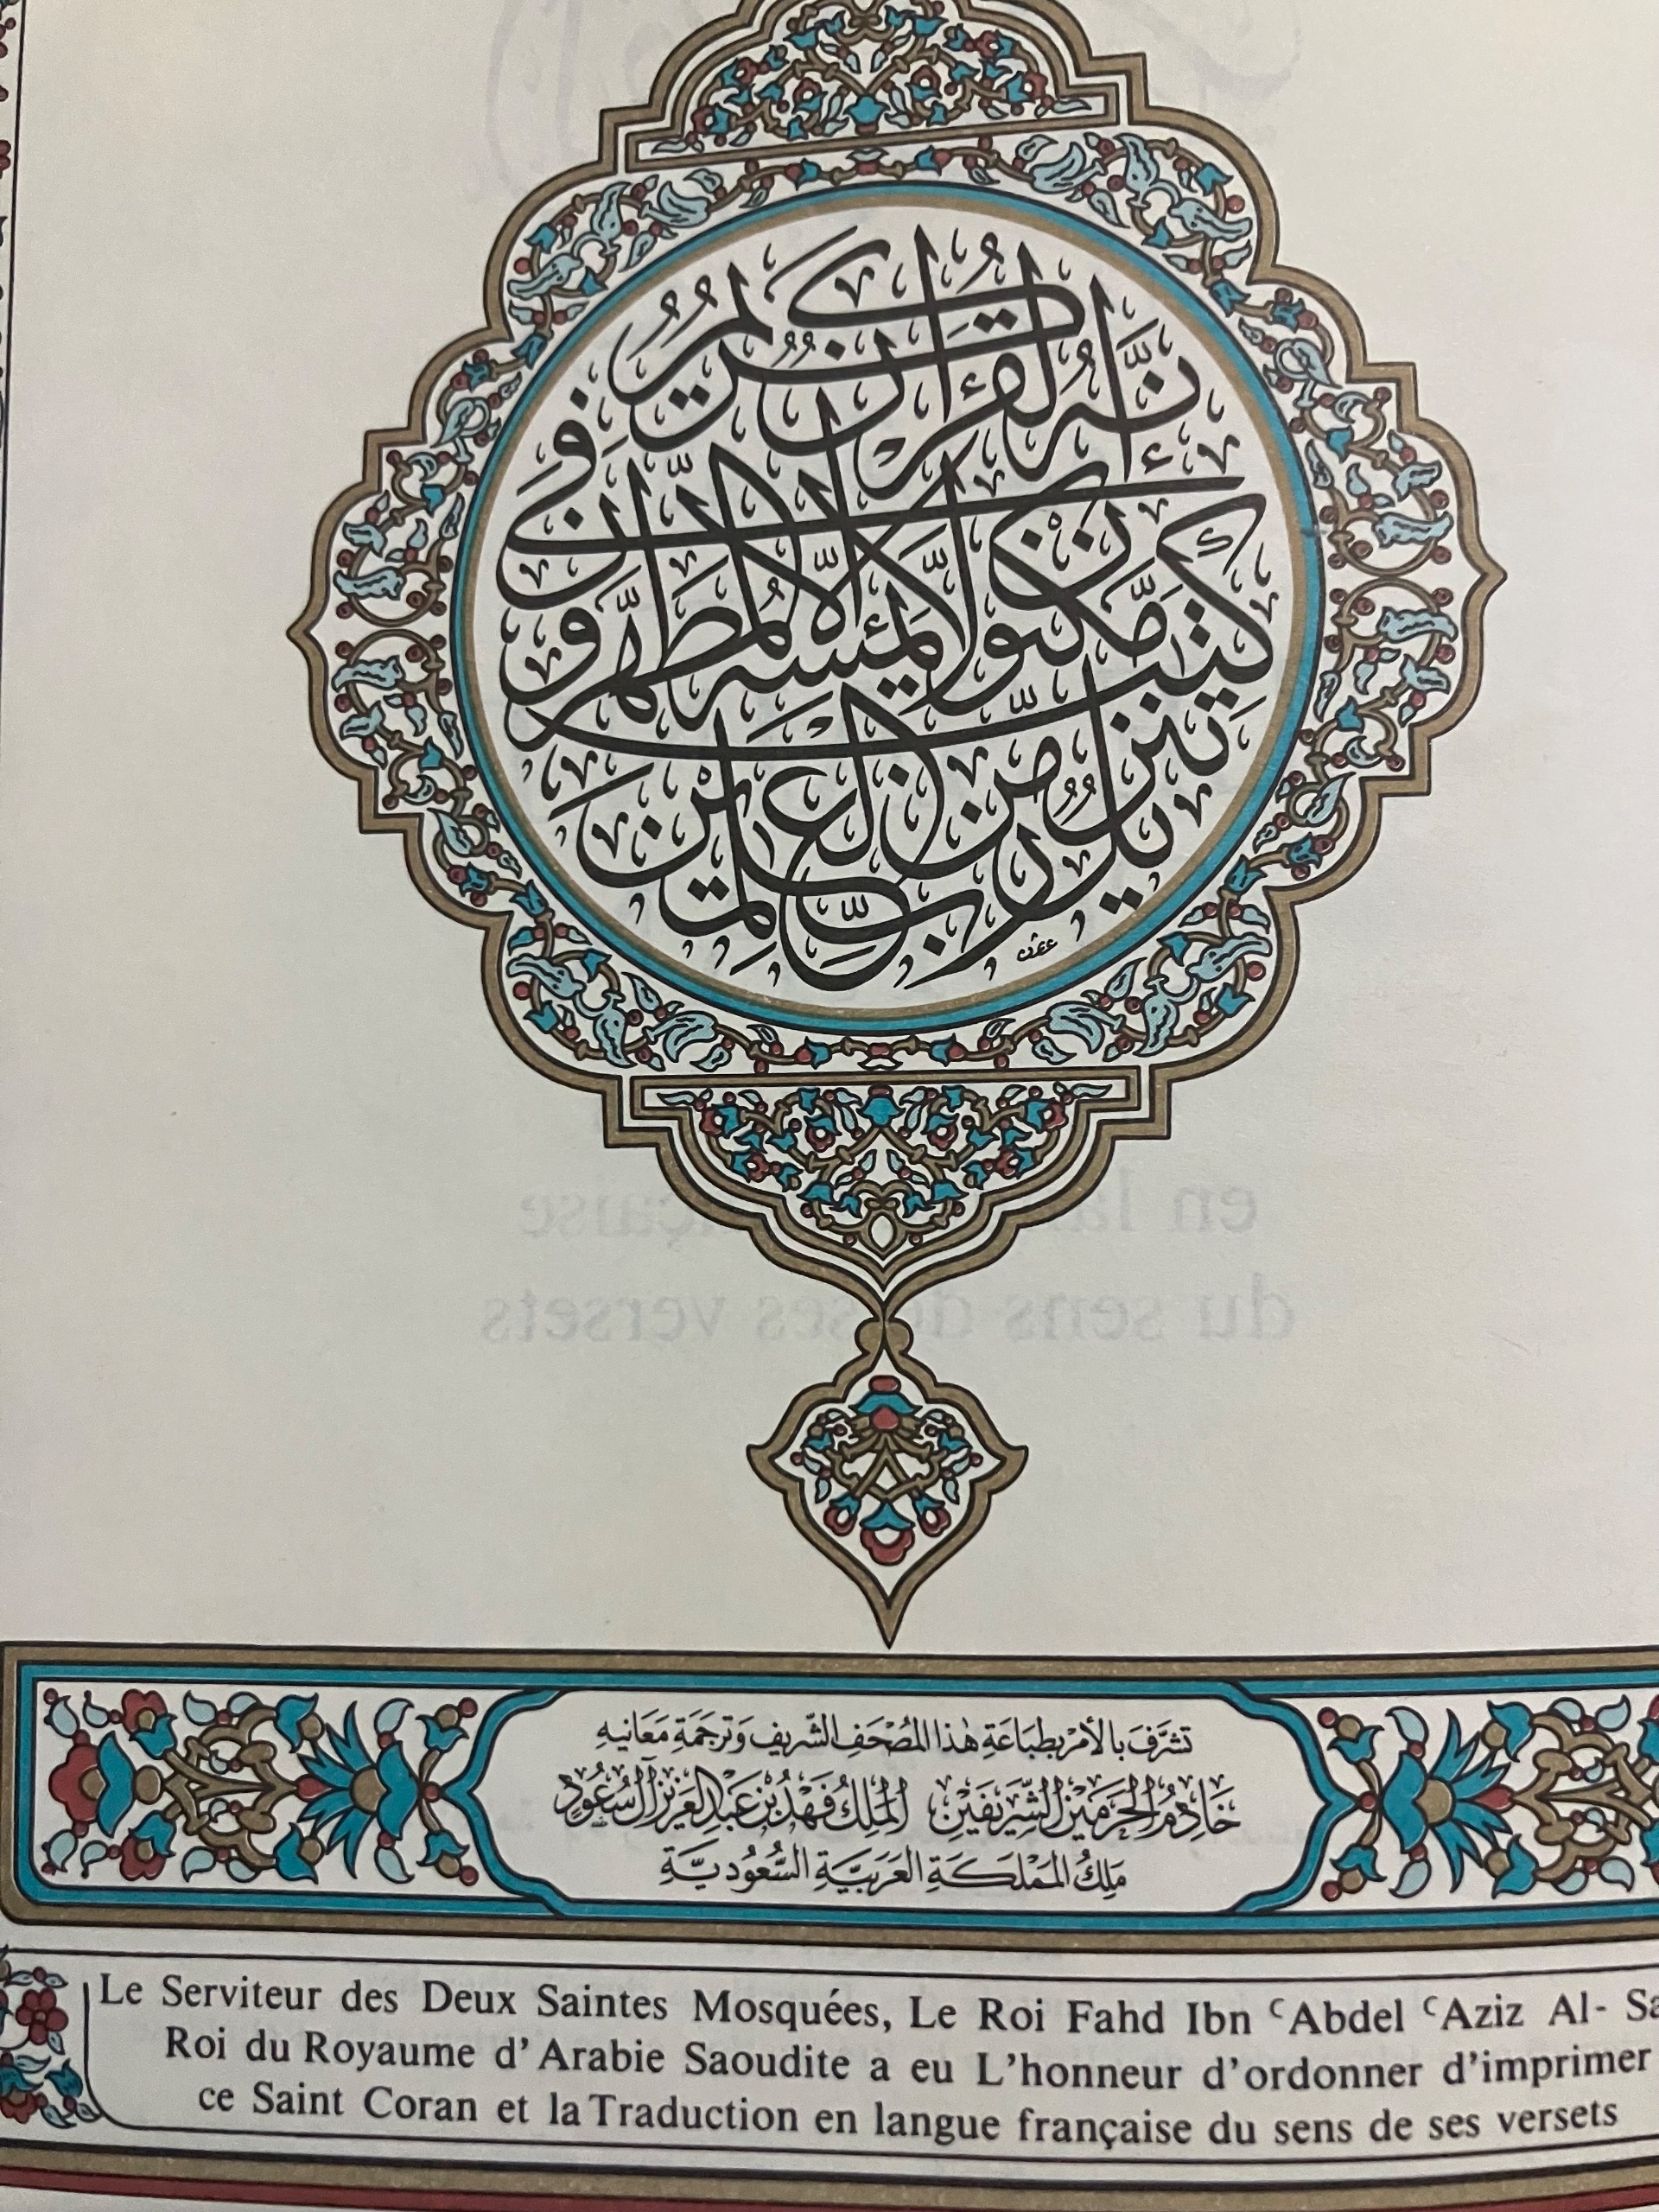 إنه لقرآن كريم في
كتب مكنون لا يمسه إلا المطهرون
تنزيل من رب العلمين
تشرف بالأمر بطباعة هذا المصحف الشريف وترجمة معانيه
خادم الحرمين الشريفين الملك فهد بن عبد العزيز آل سعود
ملك المملكة العربية السعودية
Le Serviteur des Deux Saintes Mosquées, Le Roi Fahd Ibn ʿAbdel ʿAziz Al-
Roi du Royaume d'Arabie Saoudite a eu L'honneur d'ordonner d'imprimer
ce Saint Coran et la Traduction en langue française du sens de ses versets